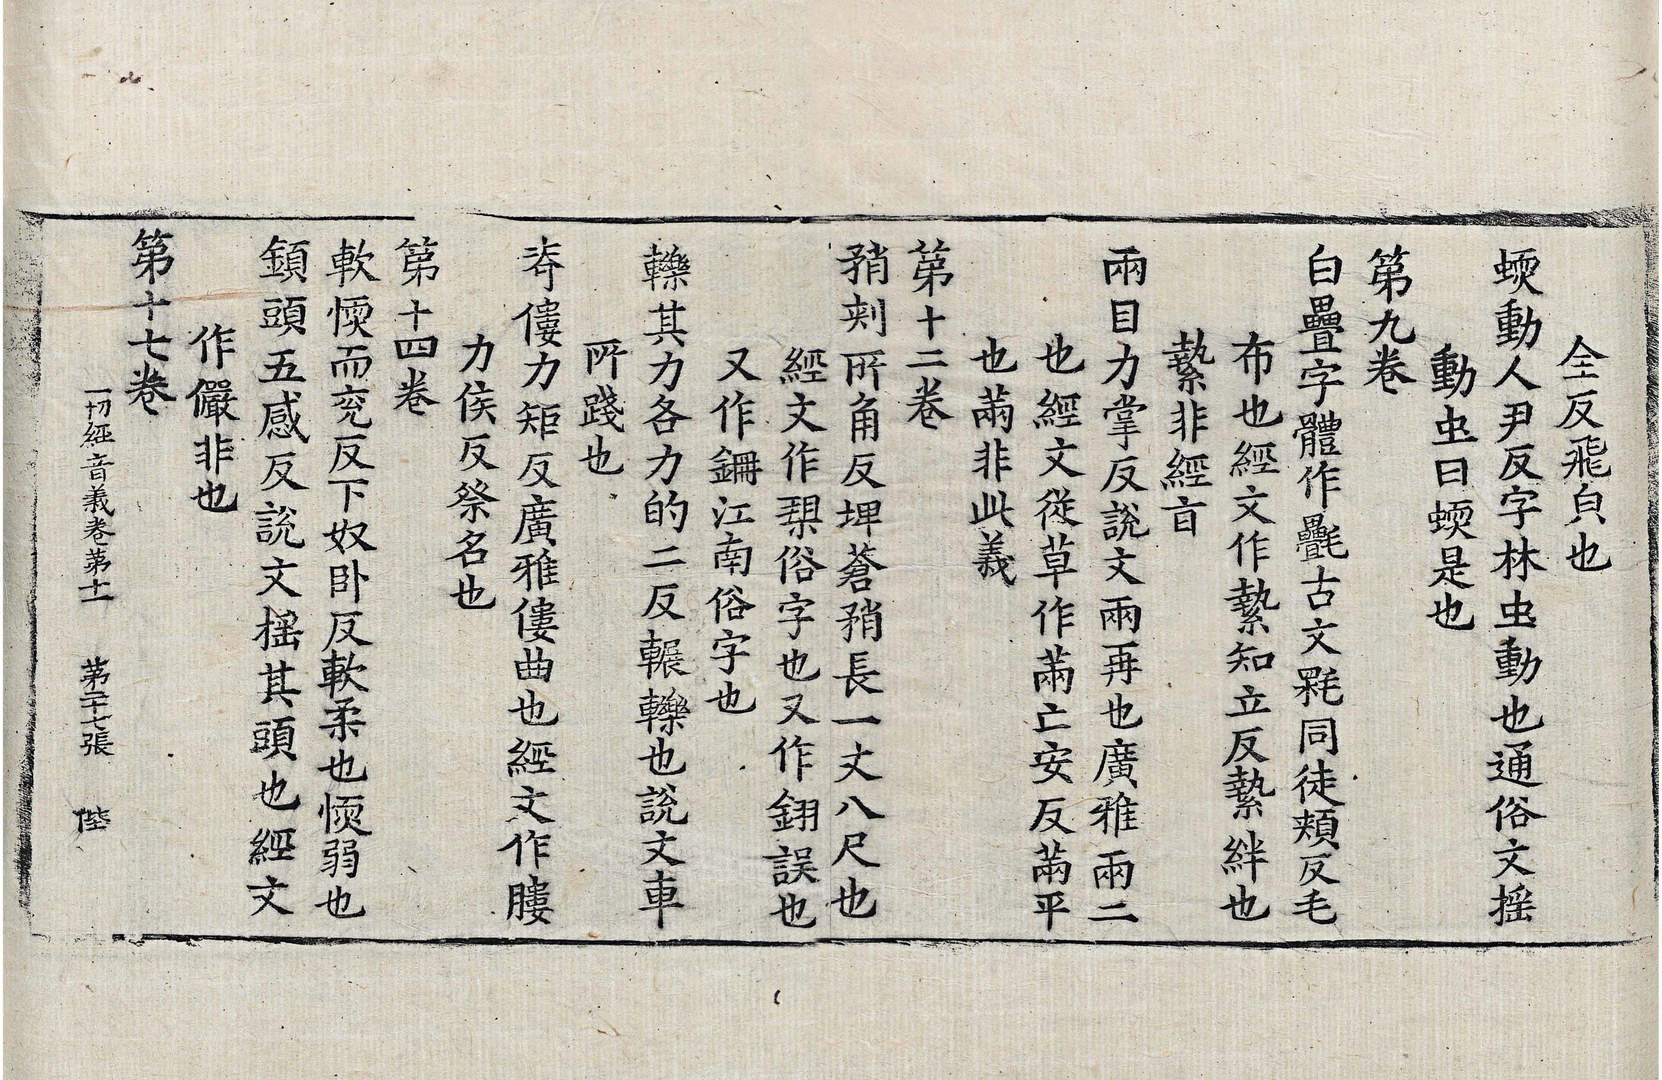 仝反飛皃也
蝡動人尹反字林虫動也通俗文摇
動虫曰蝡是也
第九卷
白疊字體作㲲古文毦同徒頰反毛
布也經文作縶知立反縶絆也
縶非經旨
兩目力掌反說文兩再也廣雅兩二
也經文從草作䓣亡安反䓣平
也䓣非此義
第十二卷
矟刾所角反埤蒼矟長一丈八尺也
經文作槊俗字也又作鈅誤也
又作鎙江南俗字也
轢其力各力的二反輾轢也說文車
所踐也
奇僂力矩反廣雅僂曲也經文作膢
力侯反祭名也
第十四卷
軟愞而兖反下奴卧反軟柔也愞弱也
顉頭五感反說文摇其頭也經文
作儼非也
第十七卷
一切經音義卷第十一 第二十七張 陛